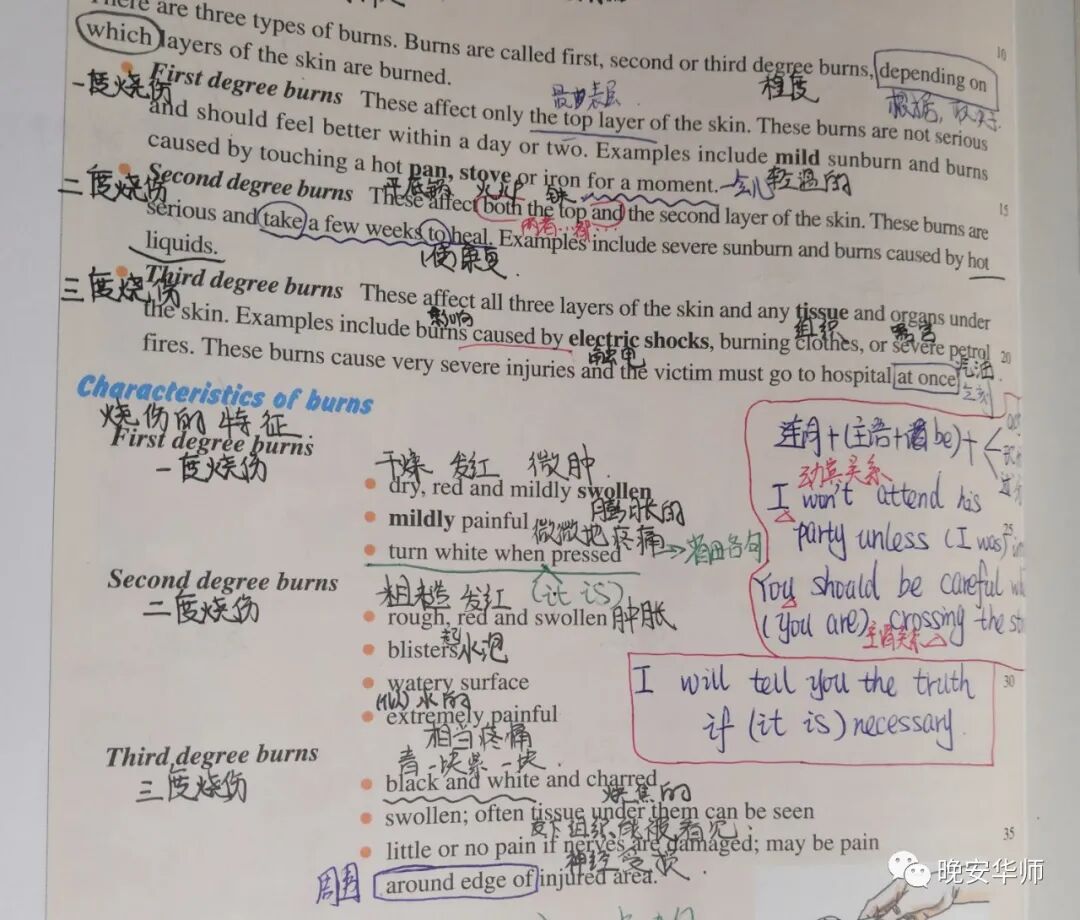 There are three types of burns. Burns are called first, second or third degree burns, depending on
10
which layers of the skin are burned.
一度烧伤
程度
根据，取决于
First degree burns These affect only the top layer of the skin. These burns are not serious
and should feel better within a day or two. Examples include mild sunburn and burns
caused by touching a hot pan, stove or iron for a moment.
平底锅 火炉 铁
一会儿
轻温的
二度烧伤
15
Second degree burns These affect both the top and the second layer of the skin. These burns are
serious and take a few weeks to heal. Examples include severe sunburn and burns caused by hot
liquids.
使康复
三度烧伤
Third degree burns These affect all three layers of the skin and any tissue and organs under
影响
组织
the skin. Examples include burns caused by electric shocks, burning clothes, or severe petrol
触电
汽油
20
fires. These burns cause very severe injuries and the victim must go to hospital at once
立刻
Characteristics of burns
烧伤的特征
First degree burns
一度烧伤
干燥 发红 微肿
dry, red and mildly swollen
膨胀的
mildly painful
微微地疼痛
turn white when pressed
(it is)
Second degree burns
二度烧伤
粗糙 发红
rough, red and swollen 肿胀
blisters 起水泡
watery surface
(似)水的
extremely painful
相当疼痛
Third degree burns
三度烧伤
青一块紫一块
black and white and charred
烧焦的
swollen; often tissue under them can be seen
皮下组织能被看见
35
little or no pain if nerves are damaged; may be pain
神经受损
周围
around edge of injured area.
连词+(主语+谓be)+
动宾关系
I won't attend his
25
party unless (I was)
You should be careful
(you are) crossing the
主谓关系
I will tell you the truth
30
if (it is) necessary.
晚安华师